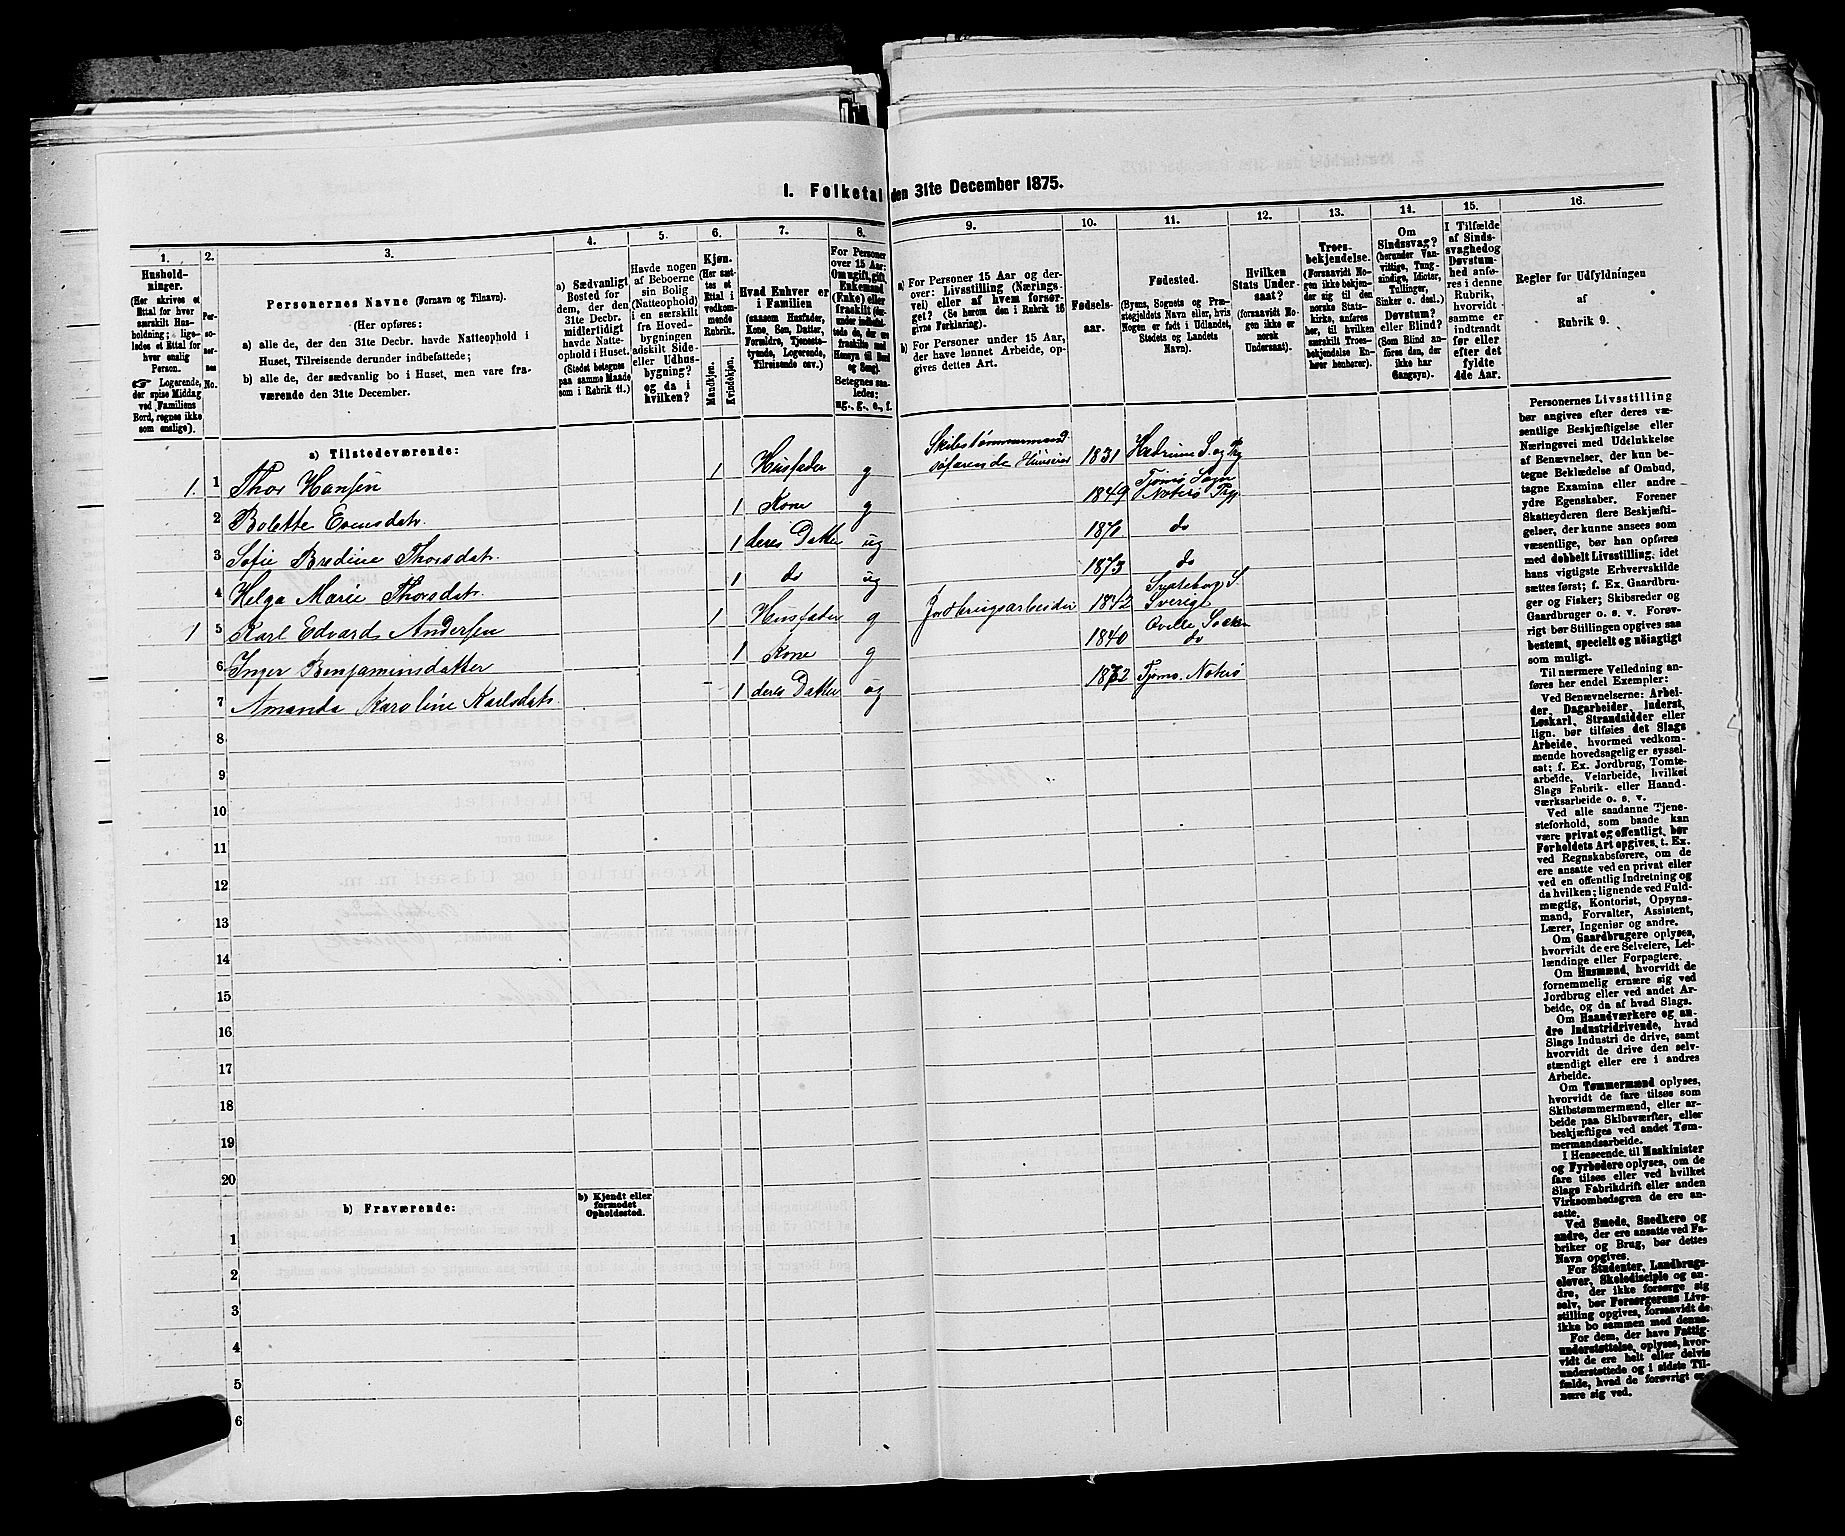 1. Folketal den 31te December 1875.
1. 2. 3. 4. 5. 6. 7. 8. 9. 10. 11. 12. 13. 14. 15. 16.
Hushold-
ninger.
(Her skrives et
Ettal for hver
særskilt Hus-
holdning; lige-
ledes et Ettal for
hver enslig
Person.
☞ Logerende,
der spise Middag
ved Familiens
Bord, regnes ikke
som enslige).
Per-
so-
ner-
nes
No.
Personernes Navne (Fornavn og Tilnavn).
(Her opføres:
a) alle de, der den 31te Decbr. havde Natteophold i
Huset, Tilreisende derunder indbefattede;
b) alle de, der sædvanlig bo i Huset, men vare fra-
værende den 31te December.
a) Sædvanligt
Bosted for
dem, der den
31te Decbr.
midlertidigt
havde Natte-
ophold i Huset.
(Stedet betegnes
paa samme Maade
som i Rubrik 11.)
Havde nogen
af Beboerne
sin Bolig
(Natteophold)
i en særskilt
fra Hoved-
bygningen
adskilt Side-
eller Udhus-
bygning?
og da i
hvilken?
Kjøn.
(Her sæt-
tes et
Ettal i
vedkom-
mende
Rubrik.
Mandkjøn.
Kvindekjøn.
Hvad Enhver er
i Familien
(saasom Husfader,
Kone, Søn, Datter,
Forældre, Tjeneste-
tyende, Logerende,
Tilreisende osv.)
For Personer
over 15 Aar:
Om ugift, gift,
Enkemand
(Enke) eller
fraskilt
Betegnes saa-
ledes:
ug., g., e., f.
a) For Personer 15 Aar og der-
over: Livsstilling (Nærings-
vei) eller af hvem forsør-
get? (Se herom den i Rubrik 16
givne Forklaring).
b) For Personer under 15 Aar,
der have lønnet Arbeide, op-
gives dettes Art.
Fødsels-
aar.
Fødested.
(Byens, Sognets og Præ-
stegjeldets Navn eller, hvis
Nogen er født i Udlandet,
Stedets og Landets
Navn).
Hvilken
Stats Under-
saat?
(foraavidt No-
gen ikke er
norsk
Undersaat).
Troes-
bekjendelse.
(Foraavidt No-
gen ikke bekjen-
der sig til den
norske Stats-
kirke, anføres
her, til hvilken
særskilt Troes-
bekjendelse En-
hver henhører).
Om
Sindssvag?
(herunder Van-
vittige, Tung-
sindige, Idioter,
Tullinger,
Sinker o. desl.)
Døvstum?
eller Blind?
(Som Blind an-
føres den, der
ikke har
Gangsyn).
I Tilfælde
af Sinds-
svaghed og
Døvstum-
hed anfø-
res i denne
Rubrik,
hvorvidt
samme er
indtraadt
før eller
efter det
fyldte
4de Aar.
Regler for Udfyldningen
af
Rubrik 9.
a) Tilstedeværende:
1. 1 Thor Hansen 1 Husfader g Skibstømmermand
søfarende Huuseier 1831 Hedrum S. og Prg
2 Bolette Evensdatr. 1 Kone g 1849 Tjømø Sogn
Nøterø Prg.
3 Sofie Bredine Thorsdatr. 1 deres Datter ug 1870. do
4 Helga Marie Thorsdatr. 1 do ug 1873 do
1 5 Karl Edvard Andersen 1 Husfader g Jordbrugsarbeider 1842 S.
Sverige
6 Inger Benjaminsdatter 1 Kone g 1840 Socken
do
7 Amanda Karoline Karlsdatr. 1 deres Datter ug 1872 Tjømø. Nøterø
8
9
10
11
12
13
14
15
16
17
18
19
20
b) Fraværende:
b) Kjendt eller
formodet
Opholdssted.
1
2
3
4
5
6
Personernes Livsstilling
bør angives efter deres væ-
sentlige Beskjæftigelse eller
Næringsvei med Udelukkelse
af Benævnelser, der kun be-
tegne Beklædelse af Ombud,
tagne Examina eller andre
ydre Egenskaber. Forener
Skatteyderen flere Beskjæfti-
gelser, der kunne ansees som
væsentlige, bør han opføres
med dobbelt Livsstilling, idet
hans vigtigste Erhvervskilde
sættes først; f. Ex. Gaardbru-
ger og Fisker; Skibsreder og
Gaardbruger o. s. v. Forøv-
rigt bør Stillingen opgives saa
bestemt, specielt og nøiagtigt
som muligt.
Til nærmere Veiledning an-
føres her endel Exempler:
Ved Benævnelserne: Arbei-
der, Dagarbeider, Inderst,
Løskarl, Strandsidder eller
lign. bør tilføies det Slags
Arbeide, hvormed vedkom-
mende hovedsagelig er syssel-
sat; f. Ex. Jordbrug, Tomte-
arbeide, Veiarbeide, hvilket
Slags Fabrik- eller Haand-
værksarbeide o. s. v.
Ved alle saadanne Tjene-
steforhold, som baade kan
være privat og offentligt, bør
Forholdets Art opgives, t. Ex.
ved Regnskabsførere, om de
ere ansatte ved en privat eller
ved en offentlig Indretning og
da hvilken; lignende ved Fuld-
mægtig, Kontorist, Opsyns-
mand, Forvalter, Assistent,
Lærer, Ingeniør og andre.
Om Gaardbrugere oplyses,
hvorvidt de ere Selveiere, Lei-
lændinge eller Forpagtere.
Om Husmænd, hvorvidt de
fornemmelig ernære sig ved
Jordbrug eller ved andet Ar-
beide, og da af hvad Slags.
Om Haandværkere og an-
dre Industridrivende, hvad
Slags Industri de drive, samt
hvorvidt de drive den selv-
stændigt eller ere i andres
Arbeide.
Om Tømmermænd oplyses,
hvorvidt de fare tilsøs som
Skibstømmermænd, eller ar-
beide paa Skibsværfter, eller
beskjæftiges ved andet Tøm-
mermandsarbeide.
I Henseende til Maskinister
og Fyrbødere oplyses, om de
fare tilsøs eller ved hvilket
Slags Fabrikdrift eller anden
Virksomhedsgren de ere an-
satte.
Ved Smede, Snedkere og
andre, der ere ansatte ved Fa-
briker og Brug, bør dettes
Navn opgives.
For Studenter, Landbrugs-
elever, Skoledisciple og an-
dre, der ikke forsørge sig
selv, bør Forsørgerens Livs-
stilling opgives, forsaavidt de
ikke bo sammen med denne.
For dem, der have Fattig-
understøttelse, oplyses, hvor-
vidt de ere helt eller delvis
understøttede og i sidste Til-
fælde, hvad de forøvrigt er-
nære sig ved.